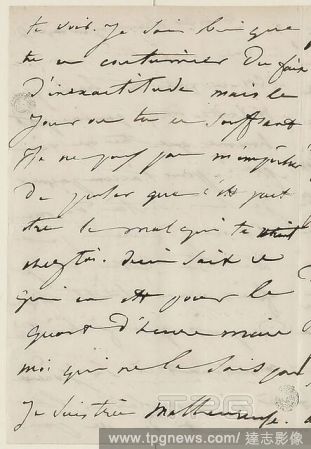 te voir. Je sais bien que
tu es coutumier du fait
d'inexactitude mais le
jour où tu es souffrant
Je ne puis pas m'empêcher
de que c'est peut
être le mal qui te
chez toi. Dieu sait ce
qui en est pour le
quart d'heure mais
moi qui ne le sais pas
je suis très malheureuse.
TPG
www.tpgnews.com/ 達志影像